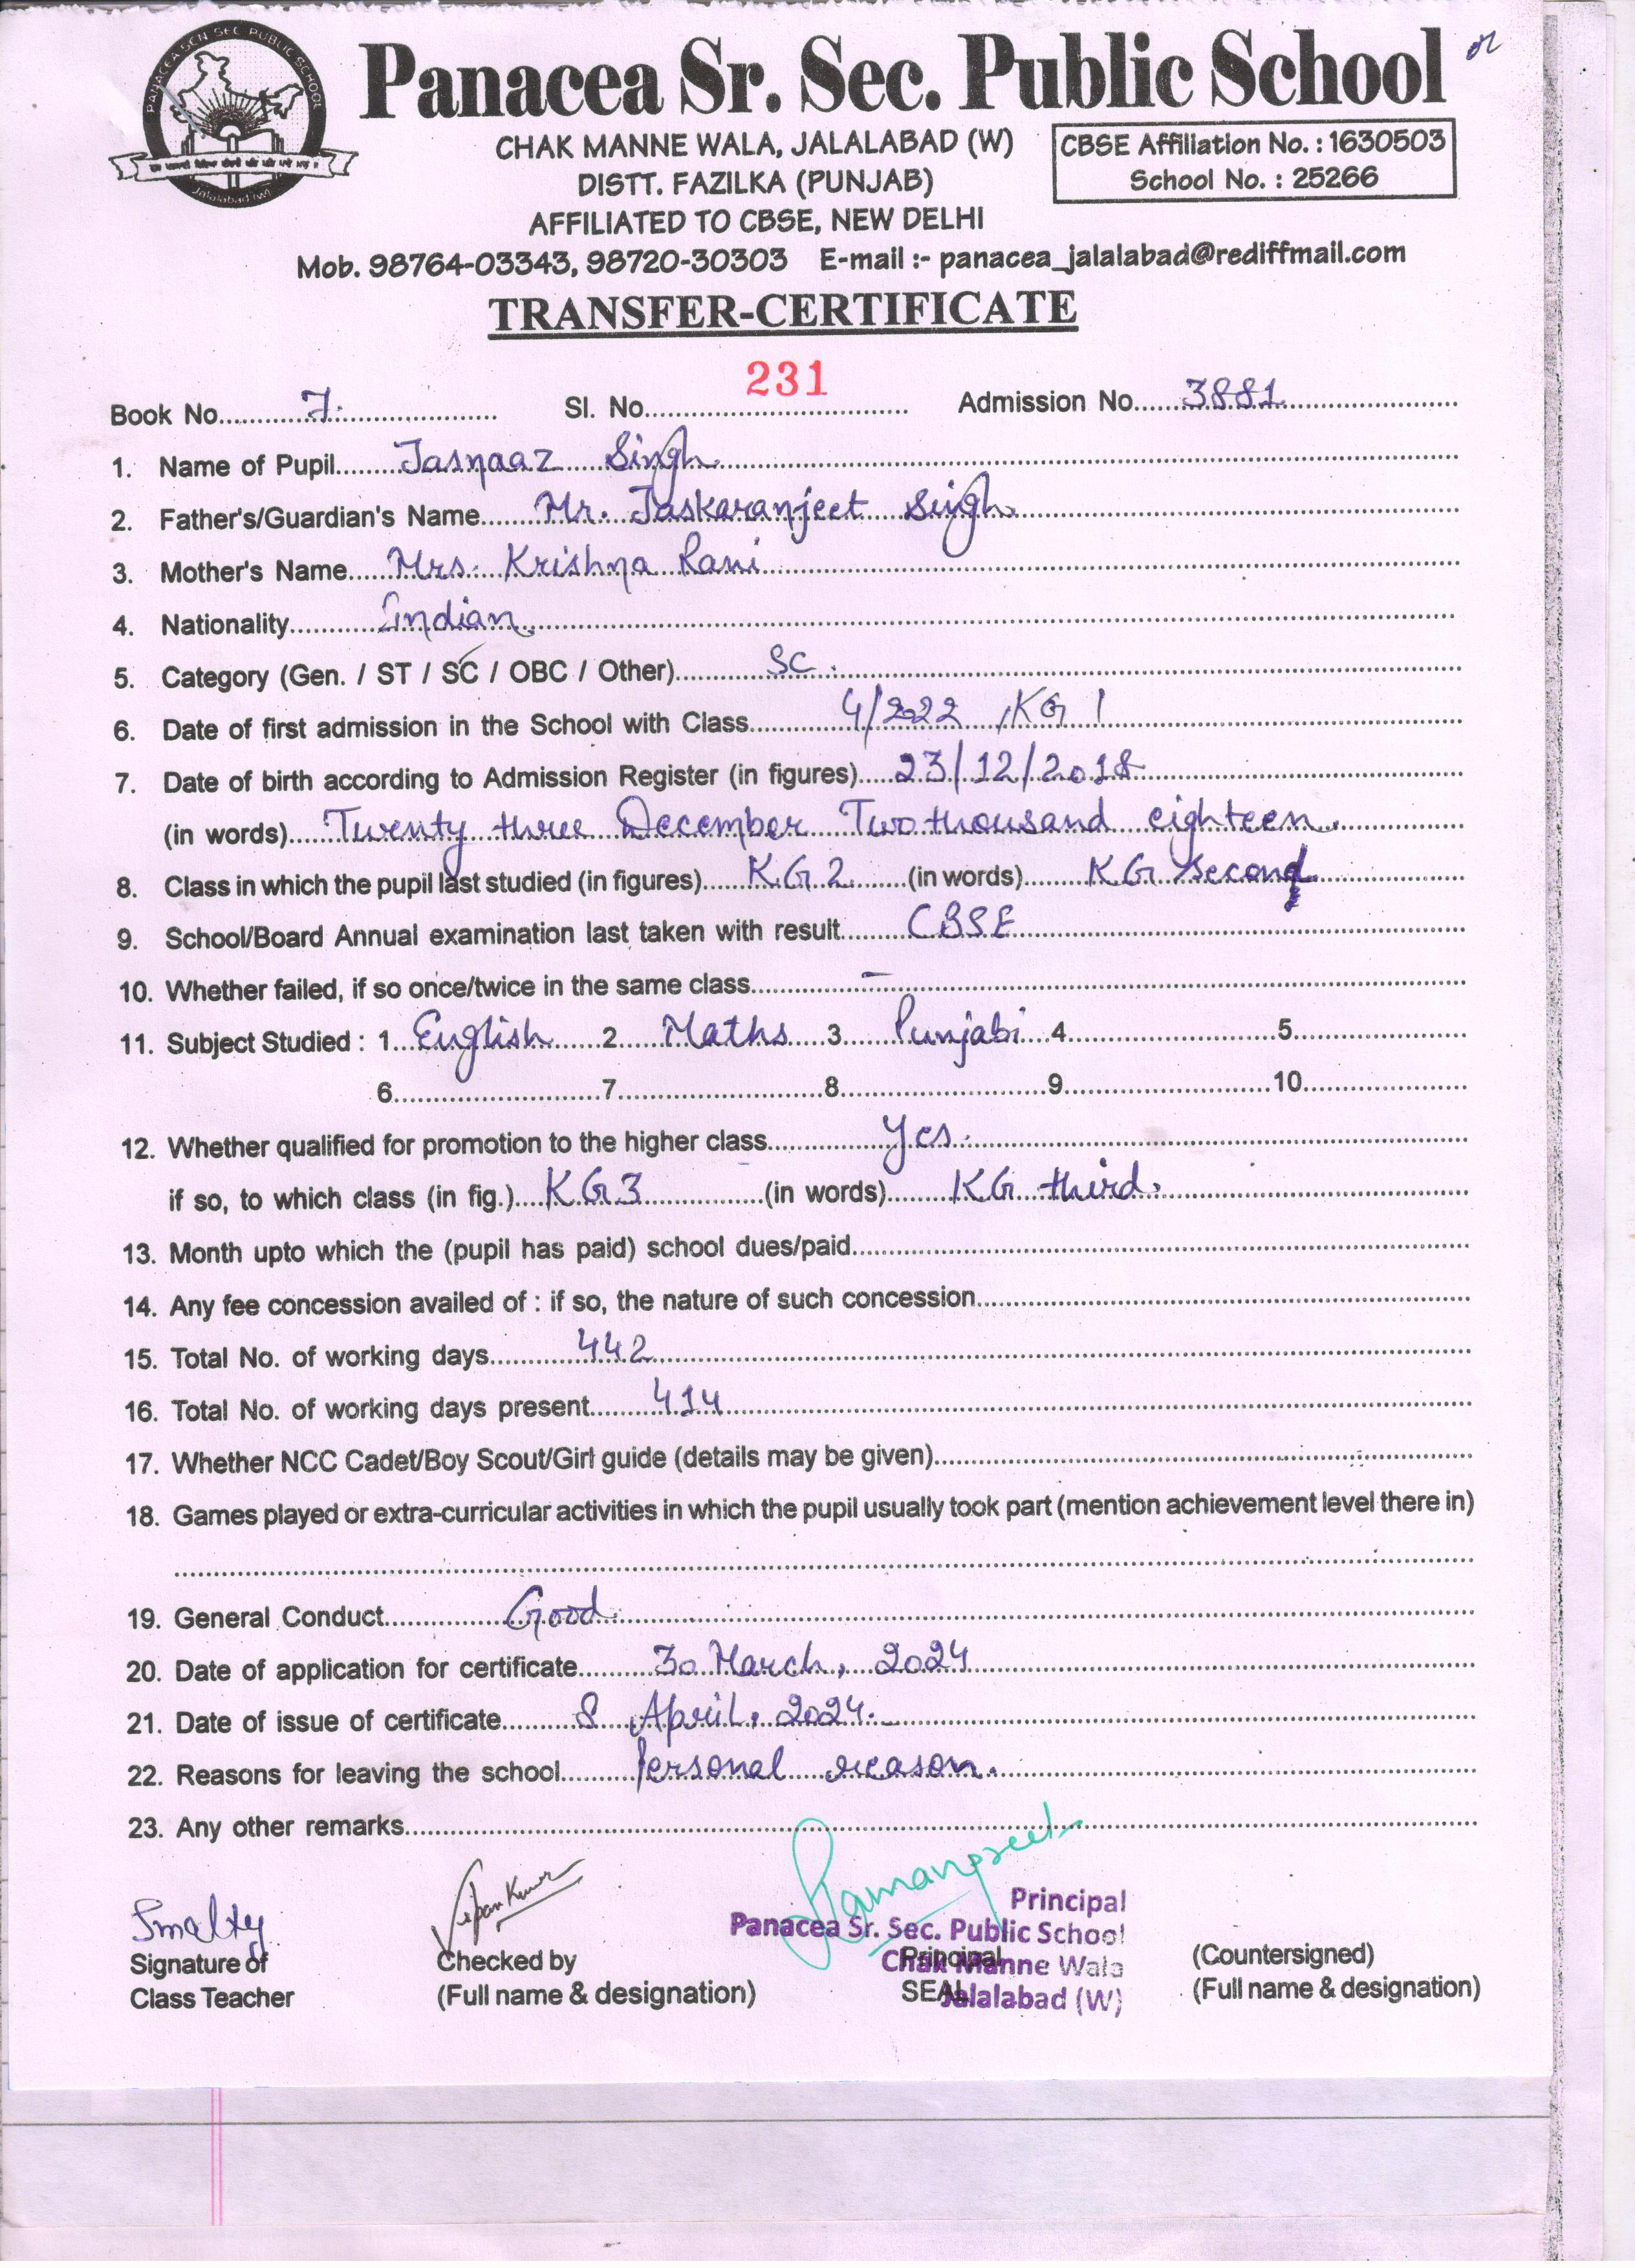 PANACEA SCN SEC PUBLIC SCHOOL
Jalalabad (W)
Panacea Sr. Sec. Public School
CHAK MANNE WALA, JALALABAD (W)
DISTT. FAZILKA (PUNJAB)
AFFILIATED TO CBSE, NEW DELHI
CBSE Affiliation No. : 1630503
School No. : 25266
Mob. 98764-03343, 98720-30303 E-mail :- panacea_jalalabad@rediffmail.com
TRANSFER-CERTIFICATE
Book No. 7. Sl. No. 231 Admission No. 3881
1. Name of Pupil Jasnaaz Singh
2. Father's/Guardian's Name Mr. Jaskaranjeet Singh
3. Mother's Name Mrs. Krishna Rani
4. Nationality Indian
5. Category (Gen. / ST / SC / OBC / Other) SC.
6. Date of first admission in the School with Class 4/2022, KG 1
7. Date of birth according to Admission Register (in figures) 23/12/2018
(in words) Twenty three December Two thousand eighteen.
8. Class in which the pupil last studied (in figures) KG 2 (in words) KG Second
9. School/Board Annual examination last taken with result CBSE
10. Whether failed, if so once/twice in the same class –
11. Subject Studied : 1 English 2 Maths 3 Punjabi 4 5
6 7 8 9 10
12. Whether qualified for promotion to the higher class Yes.
if so, to which class (in fig.) KG 3 (in words) KG third.
13. Month upto which the (pupil has paid) school dues/paid
14. Any fee concession availed of : if so, the nature of such concession
15. Total No. of working days 442
16. Total No. of working days present 414
17. Whether NCC Cadet/Boy Scout/Girl guide (details may be given)
18. Games played or extra-curricular activities in which the pupil usually took part (mention achievement level there in)
19. General Conduct Good
20. Date of application for certificate 30 March, 2024
21. Date of issue of certificate 8 April, 2024.
22. Reasons for leaving the school Personal reason.
23. Any other remarks
Ramanpreet
Principal
Panacea Sr. Sec. Public School
Chak Manne Wala
Jalalabad (W)
Signature of
Class Teacher
Checked by
(Full name & designation)
Principal
SEAL
(Countersigned)
(Full name & designation)